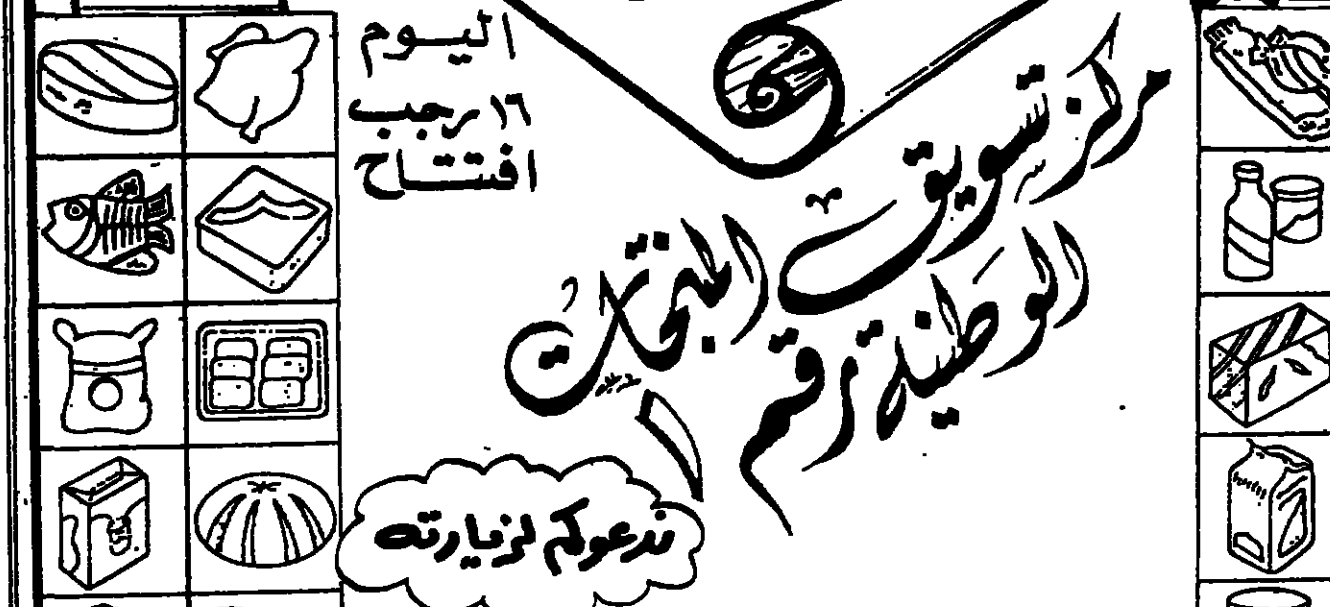 اليوم
١٦ رجب
افتتاح
مركز تسويق المنتجات
الوطنية رقم ١
ندعوكم لزيارته